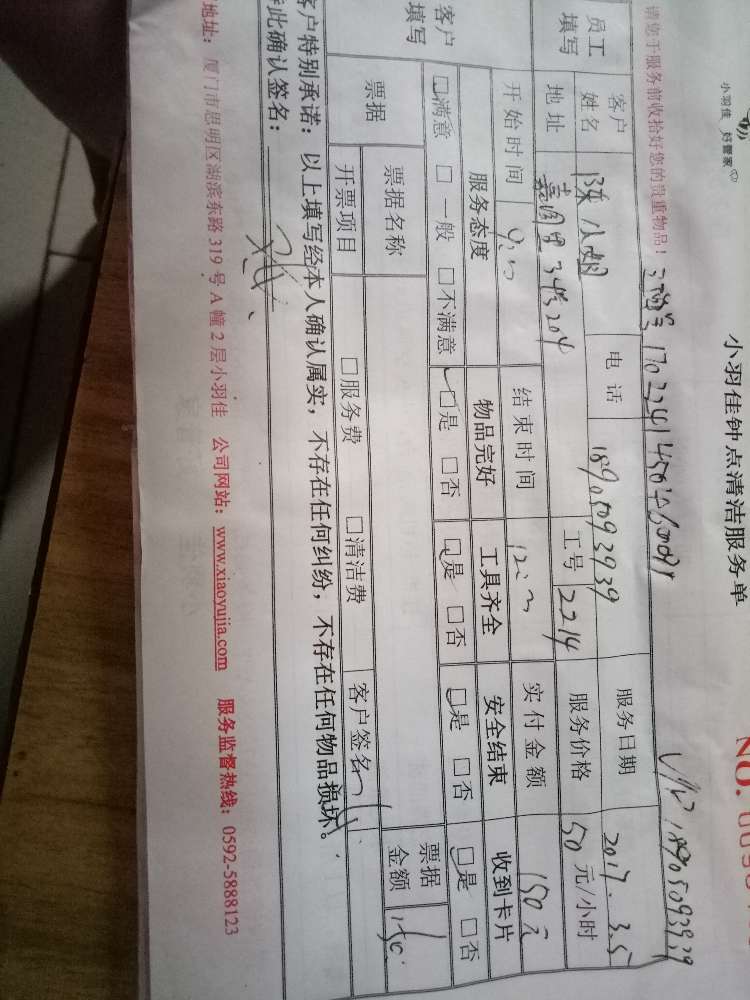 小羽佳 好管家
小羽佳钟点清洁服务单
NO.
请您于服务前收拾好您的贵重物品！
VIP 18905093939
员工填写 客户姓名 陈小姐 电话 18905093939 服务日期 2017.3.5
地址 嘉 34号204 工号 2214 服务价格 50 元/小时
开始时间 9: 结束时间 12: 实付金额 150元
客户填写 服务态度 物品完好 工具齐全 安全结束 收到卡片
□满意 □一般 □不满意 □是 □否 □是 □否 □是 □否 □是 □否
票据 票据名称 票据金额 150
开票项目 □服务费 □清洁费 客户签名
客户特别承诺：以上填写经本人确认属实，不存在任何纠纷，不存在任何物品损坏。
特此确认签名：
地址：厦门市思明区湖滨东路 319 号 A 幢 2 层小羽佳 公司网站：www.xiaoyujia.com 服务监督热线：0592-5888123